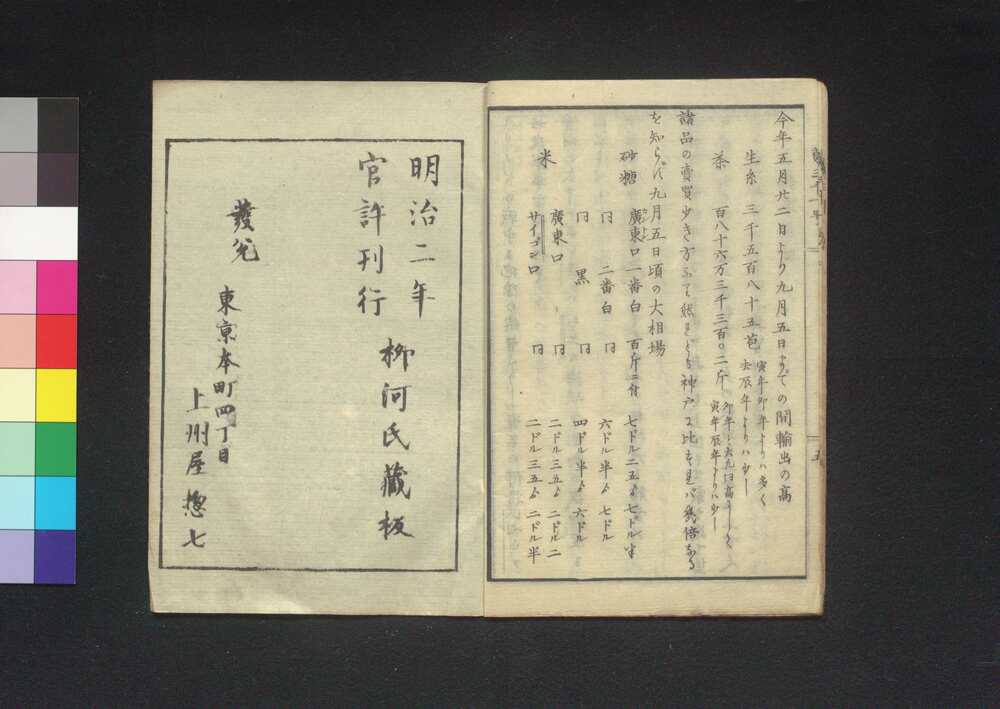 今年五月廿二日より九月五日までの間輸出の高
生糸 三千五百八十五苞 寅年卯年よりハ多く
去辰年よりハ少し
茶 百八十六万三千三百〇二斤 卯年と去九日高
寅年辰年よりハ少し
諸品の賣買少き方にて然れども神戸に比すれバ幾倍なる
を知らバ九月五日頃の大相場
砂糖 廣東口一番白 百斤ニ付 七ドル二五ゟ七ドル半
同 二番白 同 六ドル半ゟ七ドル
同 黒 同 四ドル半ゟ六ドル
米 廣東口 同 二ドル三五ゟ二ドル二
サイゴン口 同 二ドル三五ゟ二ドル半
五
明治二年
官許刊行 柳河氏藏板
發兌 東京本町四丁目
上州屋惣七